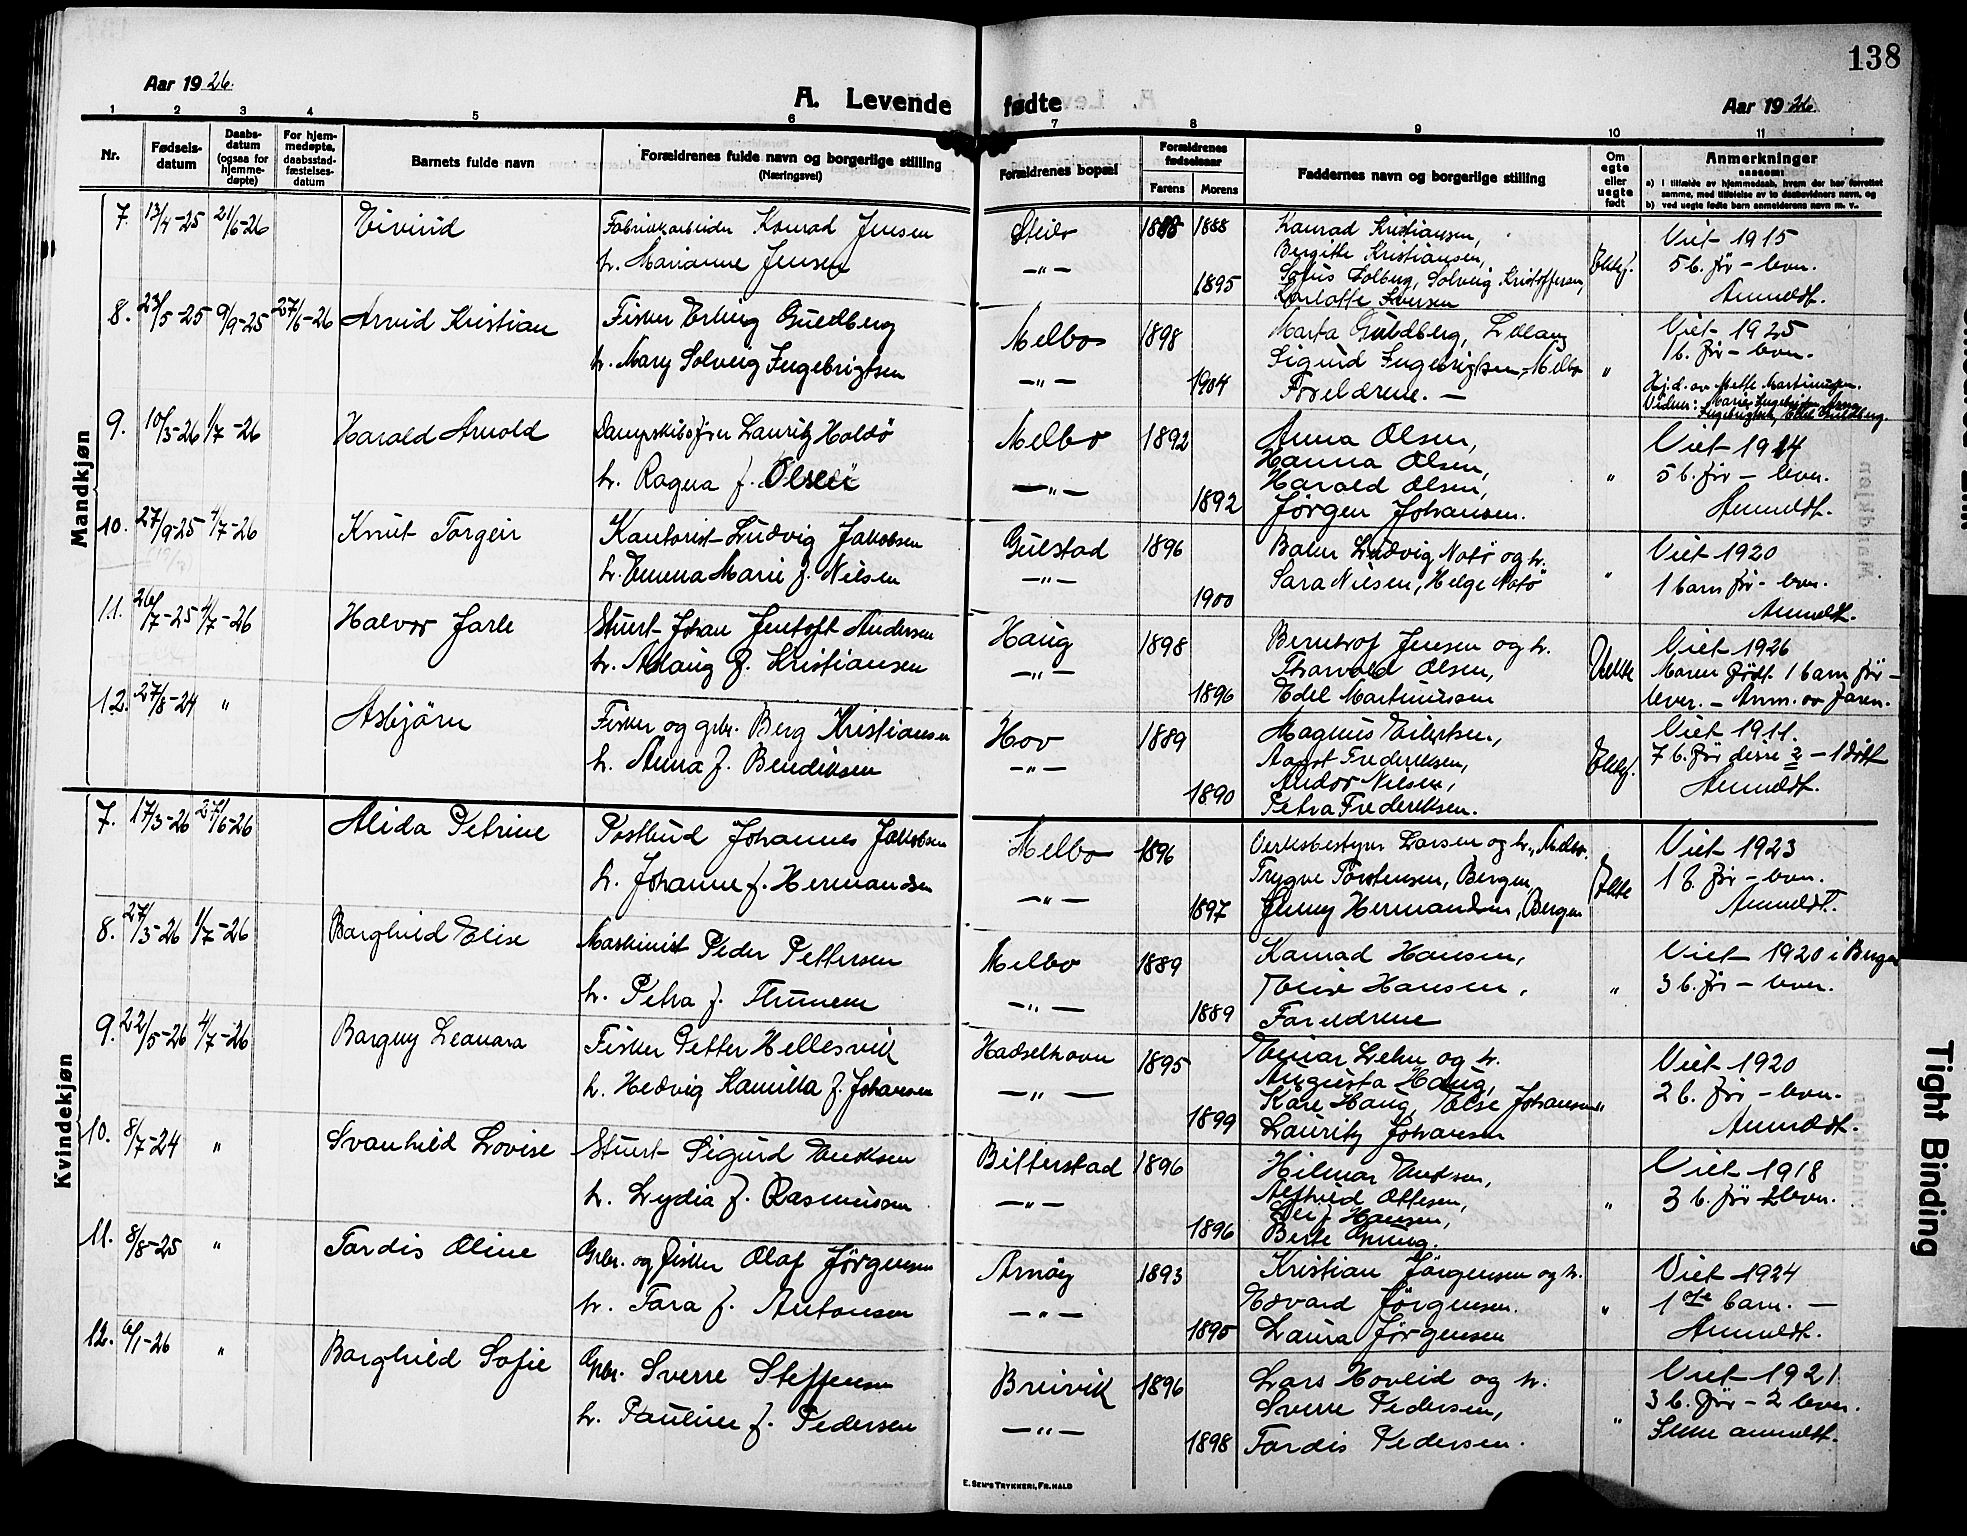 138
Aar 1926.
A. Levende fødte
Aar 1926.
1 2 3 4 5 6 7 8 9 10 11
Nr.
Fødsels-
datum
Daabs-
datum
(ogsaa for
hjemme-
døpte)
For hjem-
medøpte,
daabsstad-
fæstelses-
datum
Barnets fulde navn
Forældrenes fulde navn og borgerlige stilling
(Næringsvei)
Forældrenes bopæl
Forældrenes
fødselsaar
Farens Morens
Faddernes navn og borgerlige stilling
Om
egte
eller
uegte
født
Anmerkninger
saasom:
a) i tilfælde av hjemmedaab, hvem der har forrettet
samme, med tilføielse av to daabsvidners navn, og
b) ved uegte fødte barn anmelderens navn m. v.
Mandkjøn
7. 13/4-25 21/6-26 Eivind
Fabrikarbeider Konrad Jensen
h. Marianne Jensen
1888 1888
1895
Konrad Kristiansen,
Bergitte Kristiansen,
Sofus Solberg, Solveig Kristoffersen,
Karlotte Iversen
Viet 1915
5 b. før - lever.
Anmeldt.
8. 23/5-25 9/9-25 27/6-26 Arvid Kristian
Fisker Erling Guldberg
h. Mary Solveig Ingebrigtsen
Melbo
-"-
1898
1904
Marta Guldberg,
Sigurd Ingebrigtsen, Melbo
Foreldrene. -
"
Viet 1925
1 b. før - lever.
Hj.d. av Mette Martinussen.
Vidner: Marie Ingebrigtsen, Anna
Ingebrigtsen, Edel Guldberg
9. 10/3-26 1/7-26 Harald Arnold
Dampskibsfører Lauritz Holdø
h. Ragna f. Olsen
Melbo
-"-
1892
1892
Anna Olsen,
Hanna Olsen,
Harald Olsen,
Jørgen Johansen.
"
Viet 1914
5 b. før - lever.
Anmeldt.
10. 27/9-25 4/7-26 Knut Torgeir
Kontorist Ludvig Jakobsen
h. Emma Marie f. Nilsen
Gulstad
-"-
1896
1900
Baker Ludvig Notø og h.
Sara Nilsen, Helge Notø
"
Viet 1920
1 barn før - lever.
Anmeldt.
11. 26/7-25 4/7-26 Halvor Jarle
Stuert Johan Jentoft Andersen
h. Aslaug f. Kristiansen
Haug
-"-
1898
1896
Berntrof Jensen og h.
Thorvald Olsen,
Edel Martinussen
Uekte
Viet 1926
Moren født 1 barn før -
lever. - Anm. av faren.
12. 27/8-24 " Asbjørn
Fisker og gbr. Berg Kristiansen
h. Anna f. Bendiksen
Hov
-"-
1889
1890
Magnus Eilertsen,
Aagot Frederiksen,
Andor Nilsen,
Petra Frederiksen.
Viet 1911.
7 b. før disse 2 - 1 død
Anmeldt.
Kvindekjøn
7. 17/3-26 27/6-26 Alida Petrine
Postbud Johannes Jakobsen
h. Johanne f. Hermandsen
Melbo
-"-
1896
1897
Verksbestyrer Larsen og h., Melbo.
Trygve Torstensen, Bergen
Jenny Hermandsen, Bergen
Ekte
Viet 1923
1 b. før - lever.
Anmeldt.
8. 27/3-26 1/7-26 Borghild Elise
Maskinist Peder Pettersen
h. Petra f. Thunem
Melbo
-"-
1889
1889
Konrad Hansen,
Elise Hansen,
Foreldrene
"
Viet 1920 i Bergen
3 b. før - lever.
9. 22/5-26 4/7-26 Borgny Leonora
Fisker Petter Hellesvik
h. Hedvig Kamilla f. Johansen
Hadselhavn
-"-
1895
1899
Einar Lehn og h.
Augusta Haug,
Kåre Haug, Else Johansen
Lauritz Johansen
"
Viet 1920
2 b. før - lever.
Anmeldt.
10. 8/7-24 " Svanhild Lovise
Stuert Sigurd Endresen
h. Lydia f. Rasmussen
Bitterstad
-"-
1896
1896
Hilmar
Alfhild Ottesen,
Hansen,
Berte
"
Viet 1918
3 b. før 2 lever.
11. 8/8-25 " Tordis Oline
Gbr. og fisker Olaf Jørgensen
h. Tora f. Antonsen
Arnøy
-"-
1893
1895
Kristian Jørgensen og h.
Edvard Jørgensen.
Laura Jørgensen
"
Viet 1924
1ste barn. -
Anmeldt.
12. 6/1-26 " Borghild Sofie
Gbr. Sverre Steffensen
h. Pauline f. Pedersen
Breivik
-"-
1896
1898
Lars Hovlid og h.
Sverre Pedersen,
Tordis Pedersen.
"
Viet 1921
3 b. før - 2 lever.
Ikke anmeldt.
E. SEM'S TRYKKERI, FR.HALD
Tight Binding